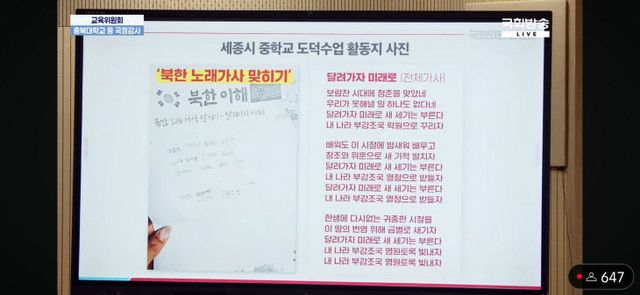 교육위원회
충북대학교 등 국정감사
국회방송
LIVE
세종시 중학교 도덕수업 활동지 사진
'북한 노래가사 맞히기'
북한 이해
달려가자 미래로 [전체가사]
보람찬 시대에 청춘을 맞았네
우리가 못해낼 일 하나도 없다네
달려가자 미래로 새 세기는 부른다
내 나라 부강조국 락원으로 꾸리자
배워도 이 시절에 밤새워 배우고
창조와 위훈으로 새 기적 펼치자
달려가자 미래로 새 세기는 부른다
내 나라 부강조국 열정으로 받들자
달려가자 미래로 새 세기는 부른다
내 나라 부강조국 열정으로 받들자
한생에 다시없는 귀중한 시절을
이 땅의 번영 위해 금별로 새기자
달려가자 미래로 새 세기는 부른다
내 나라 부강조국 영원토록 빛내자
내 나라 부강조국 영원토록 빛내자
647